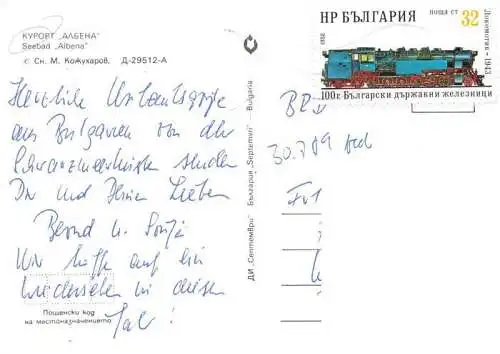 КУРОРТ „АЛБЕНА"
Seebad „Albena"
© Сн. М. Кожухаров. Д-29512-А
Herzliche Urlaubsgrüße
aus Bulgarien von der
Schwarzmeerküste senden
Dir und Deinen Lieben
Bernd u. Sonja
Wir hoffen auf ein
Wiedersehen in diesem
Jahr!
Пощенски код
на местоназначението
ДИ „Септември" България „Septemvri" - Bulgaria
НР БЪЛГАРИЯ
поща ст 32
1988
Локомотив • 1943
100г. Български държавни железници
30.7.89